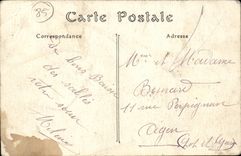 85
Carte Postale
Correspondance
Adresse
de bons Baisers
des sables
votre sœur
Mr et Madame
Bernard
11 rue Perpignan
Agen
Lot et Gar